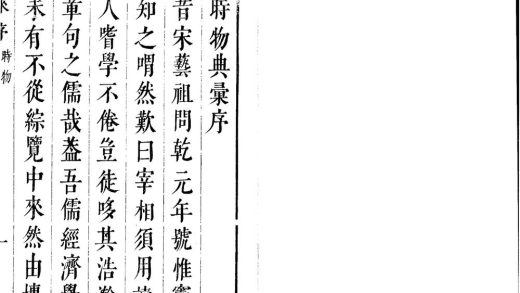 時物典彚序
昔宋藝祖問乾元年號惟竇
知之喟然歎曰宰相須用讀
人嗜學不倦豈徒哆其浩
章句之儒哉葢吾儒經濟學
未有不從綜覽中來然由博
序 時物 一